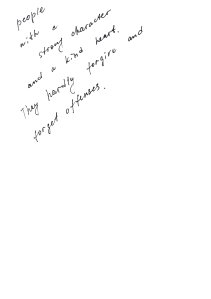 people
with a
strong character
and a kind heart.
They hardly forgive and
forget offenses.